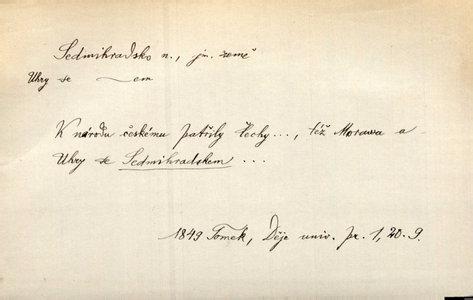 Sedmihradsko n., jm. země
Uhry se ~em
K národu českému patřily Čechy..., též Morawa a
Uhry se Sedmihradskem ...
1849 Tomek, Děje univ. pr. 1, 20. 9.